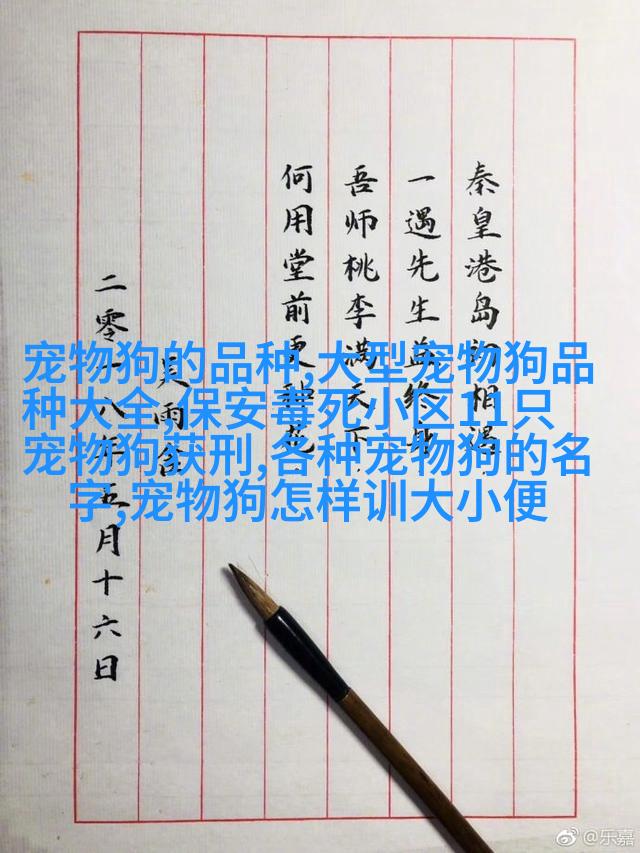 秦皇港岛初相遇
一遇先生益终身
吾师桃李满天下
何用堂前更种花
吴雨
二零一八年五月十六日
宠物狗的品种,大型宠物狗品
种大全,保安毒死小区11只
宠物狗获刑,各种宠物狗的名
字,宠物狗怎样训大小便
@乐嘉